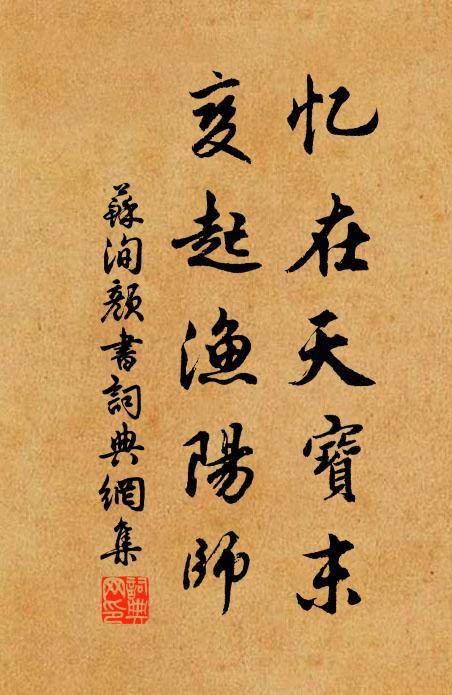 忆在天寶末
变起漁陽師
蘇洵顏書詞典網集
詞典网印